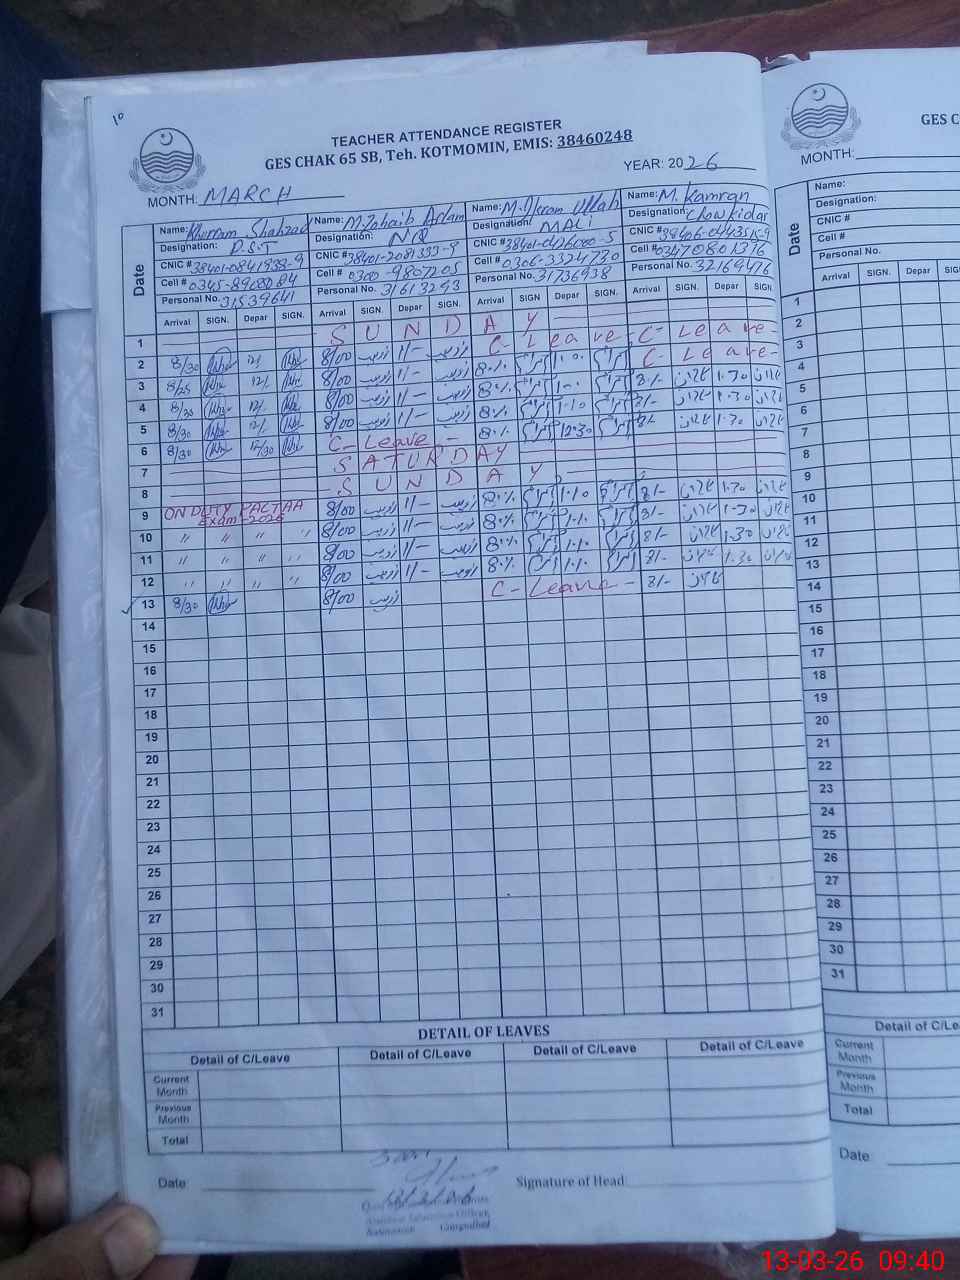 10
TEACHER ATTENDANCE REGISTER
GES CHAK 65 SB, Teh. KOTMOMIN, EMIS: 38460248
MONTH: MARCH YEAR: 2026
Name: Khurram Shahzad Name: M. Zohaib Aslam Name: M. Ikram Ullah Name: M. Kamran
Designation: P.S.T Designation: NQ Designation: MALI Designation: Chowkidar
CNIC # CNIC # 38401-2081333-9 CNIC # 38401-0426000-5 CNIC #
Cell # 0345-8908084 Cell # 0300-9807205 Cell # 0306-3324730 Cell # 03470801376
Personal No. 31539641 Personal No. 31613293 Personal No. 31736938 Personal No. 32169476
Date Arrival SIGN. Depar SIGN. Arrival SIGN. Depar SIGN. Arrival SIGN. Depar SIGN. Arrival SIGN. Depar SIGN.
1 SUNDAY
2 8/30 12/ 8/00 زوہیب 11/- زوہیب C-Leave- C-Leave-
3 8/25 12/ 8/00 زوہیب 11/- زوہیب 8·/. C-Leave-
4 8/30 12/ 8/00 زوہیب 11/- زوہیب 8·/. 8/- کامران 1·30 کامران
5 8/30 12/ 8/00 زوہیب 11/- زوہیب 8·/. 1·10 8/- کامران 1·30 کامران
6 8/30 12/30 C-Leave- 8·/. 12·30 8/- کامران 1·30 کامران
7 SATURDAY
8 SUNDAY
9 ON DUTY PACTAA Exam-2026 8/00 زوہیب 11/- زوہیب 8·/. 1·10 8/- کامران 1·30 کامران
10 " " " " 8/00 زوہیب 11/- زوہیب 8·/. 1·10 8/- کامران 1·30 کامران
11 " " " " 8/00 زوہیب 11/- زوہیب 8·/. 1·10 8/- کامران 1·30 کامران
12 " " " " 8/00 زوہیب 11/- زوہیب 8·/. 1·10 8/- کامران 1·30 کامران
13 8/30 8/00 زوہیب C-Leave- 8/- کامران
14
15
16
17
18
19
20
21
22
23
24
25
26
27
28
29
30
31
DETAIL OF LEAVES
Detail of C/Leave Detail of C/Leave Detail of C/Leave Detail of C/Leave
Current Month
Previous Month
Total
Date Signature of Head:
GES C
MONTH:
Name:
Designation:
CNIC #
Cell #
Personal No.
Date Arrival SIGN. Depar SIGN.
1
2
3
4
5
6
7
8
9
10
11
12
13
14
15
16
17
18
19
20
21
22
23
24
25
26
27
28
29
30
31
Detail of C/Le
Current Month
Previous Month
Total
Date
13-03-26 09:40